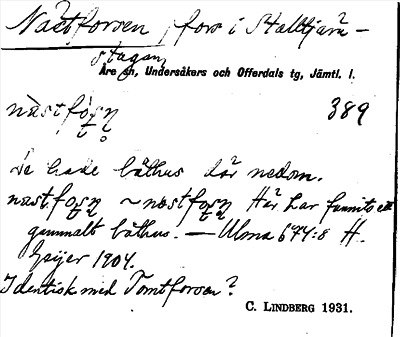 Nästforsen, fors i Stalltjärn-
stugan
Åre sn, Undersåkers och Offerdals tg, Jämtl. l.
389
De hade båthus där nedom.
Här har funnits ett
gammalt båthus. — Ulma 677:8 H.
Geijer 1904.
Identisk med Tomtforsen?
C. LINDBERG 1931.